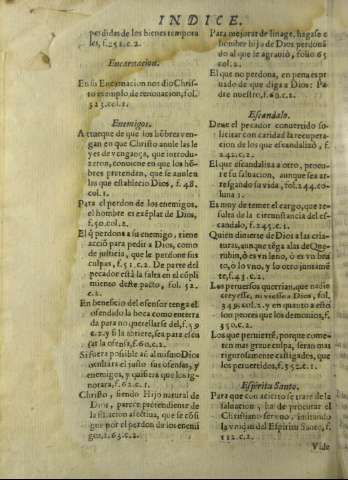 INDICE.
perdidas de los bienes tempora
les, f.251.c.2.
Encarnacion.
En su Encarnacion nos dio Chris-
to exemplo de renonacion, fol.
323.col.1.
Enemigos.
A trueque de que los hõbres ven-
gan en que Christo anule las le
yes de vengança, que introdu-
xeron, conuiene en que los hõ-
bres pretendan, que se anulen
los que establecio Dios, f. 48.
col.1.
Para el perdon de los enemigos,
el hombre es exẽplar de Dios,
f.50.col.2.
El q̃ perdona a su enemigo, tiene
acció para pedir a Dios, como
de justicia, que le perdone sus
culpas, f.51.c.2. De parte del
pecador està la falta en el cũpli
miento deste pacto, fol. 52.
c.2.
En beneficio del ofensor tenga el
ofendido la boca como enterra
da para no querellarse del, f.59
c.2. y si la abriere, sea para escu
sar la ofensa, f.60.c.2.
Si fuera possible añ al mismo Dios
ocultara el justo sus ofensas, y
enemigos, y quisiera que los ig-
norara, f.62.c.1.
Christo, siendo Hijo natural de
Dios, parece pretendiente de
la filiacion adoptiua, que se consi
gue por el perdon de los enemi
gos, f.63.c.2.
Para mejorar de linage, hagase el
hombre hijo de Dios perdonã
do al que le agrauiò, folio 65
col.2.
El que no perdona, en pena es pri
uado de que diga a Dios: Pa
dre nuestro, f.60.c.2.
Escandalo.
Deue el pecador conuertido so-
licitar con caridad la recupera-
cion de los que escandalizó, f.
242.c.2.
El que escandaliza a otro, procu-
re su saluacion, aunque sea ar-
resgando su vida, fol.244.co-
luna 1.
Es muy de temer el cargo, que re-
sulta de la circunstancia del es-
candalo, f.245.c.1.
Quien diuierte de Dios a las cria-
turas, aunque tẽga alas de Que-
rubin, ò es vn leño, ò es vn bru
to, ò lo vno, y lo otro juntamẽ
te, f.43.c.2.
Los peruersos querrian, que nadie
creyesse, ni siruiesse a Dios, fol.
349.col.2. y en quanto a esto
son peores que los demonios, f.
350.c.2.
Los que peruierten, porque come-
ten mas graue culpa, seran mas
rigurosamente castigados, que
los peruertidos, f.352.c.1.
Espiritu Santo.
Para que con acierto se trate de la
saluacion, ha de procurar el
Christiano sereno, imitando
la vnidad del Espiritu Santo, f.
112.c.2.
Vide